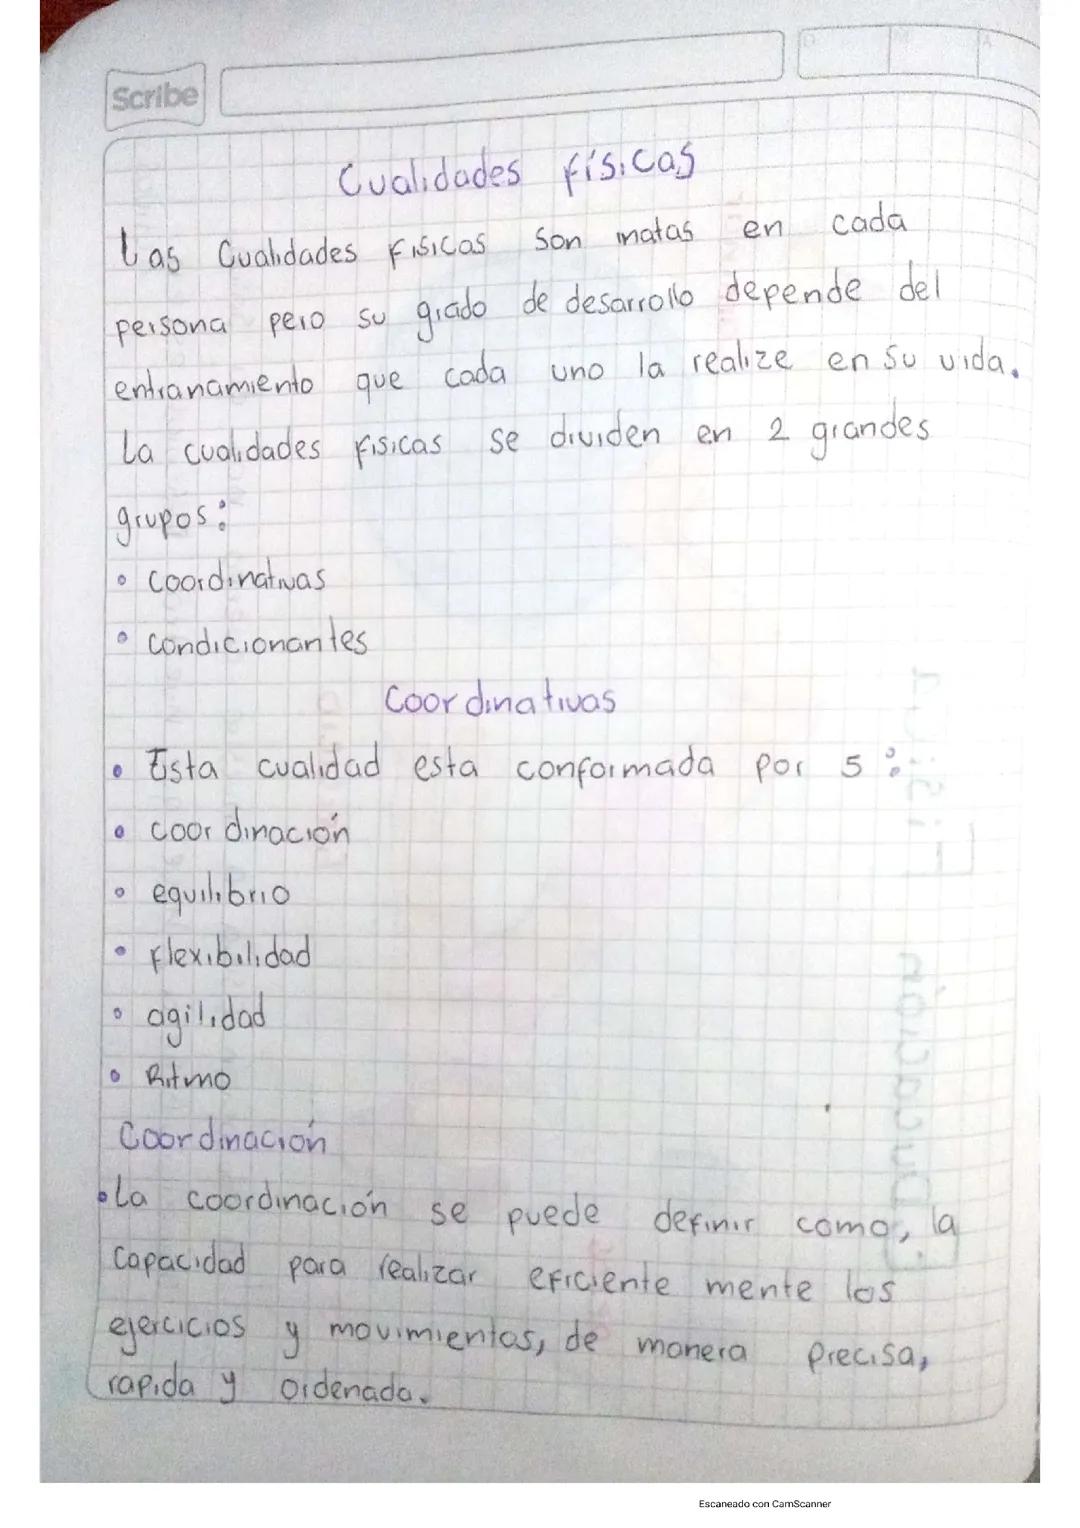 Scribe
Cualidades físicas
Las Cualidades Fisicas son inatas en cada
persona pero su grado de desarrollo depende del
entranamiento que cada uno la realize en su vida.
La cualidades Fisicas se dividen en 2 grandes
grupos:
• Coordinativas
• Condicionantes
Coordinativas
• Esta cualidad esta conformada por 5:
• coordinación
• equilibrio
• Flexibilidad
• agilidad
• Ritmo
Coordinación
• La coordinación se puede definir como, la
Capacidad para realizar eficiente mente los
ejercicios y movimientos, de manera precisa,
rapida y ordenada.
Escaneado con CamScanner